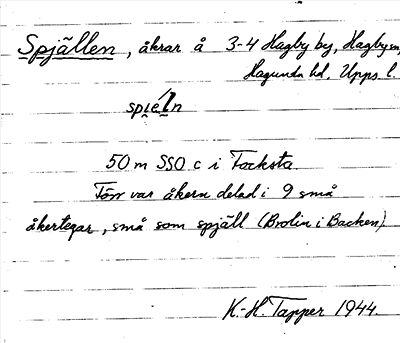 Spjällen, åkrar å 3-4 Hagby by, Hagby sn,
Hagunda hd, Upps. l.
spi̯ɛ́ln
50 m SSO c i Focksta.
Förr var åkern delad i 9 små
åkertegar, små som spjäll (Brolin i Backen).
K.-H. Tapper 1944.